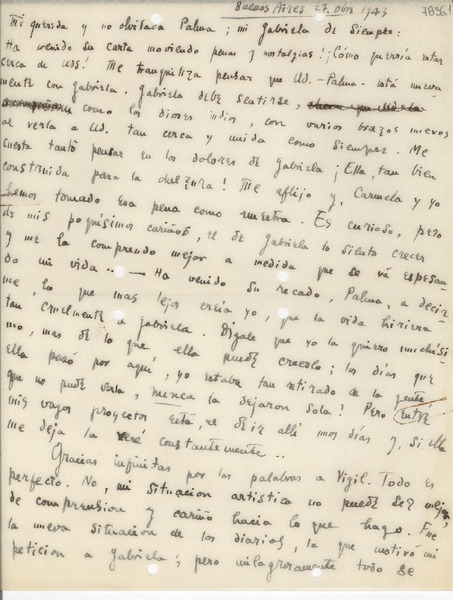 Buenos Aires 27, Obre 1943
78361
Mi querida y no olvidada Palma; mi Gabriela de Siempre:
Ha venido su carta moviendo penas y nostalgias! ¡Cómo querría estar
cerca de uds! Me tranquiliza pensar que Ud. - Palma - está nueva
mente con Gabriela. Gabriela debe sentirse,
como los dioses indios, con varios brazos nuevos
al verla a Ud. tan cerca y unida como siempre. Me
cuesta tanto pensar en los dolores de Gabriela ¡Ella, tan bien
construida para la dulzura! Me aflijo y, Carmela y yo
hemos tomado esa pena como nuestra. Es curioso, pero
de mis poquísimos cariños, el de Gabriela lo siento crecer
y me lo comprendo mejor a medida que se vá espesan
do mi vida .. — Ha venido su recado, Palma, a decir
me, lo que mas lejos creía yo, que la vida hiriera
tan cruelmente a Gabriela. Dígale que yo la quiero muchísi
mo, mas de lo que ella puede creerlo; los días que
ella pasó por aquí, yo estaba tan retirado de la gente
que no pude verla, nunca la dejaron sola! Pero entre
mis vagos proyectos está, el de ir allí unos días y, si ella
me deja la veré constantemente ..
Gracias infinitas por las palabras a Vigil. Todo es
perfecto. No, mi situacion artistica no puede ser mejor,
de comprension y cariño hacia lo que hago. Fue
la nueva situacion de los diarios, la que motivó mi
peticion a Gabriela; pero milagrosamente todo se